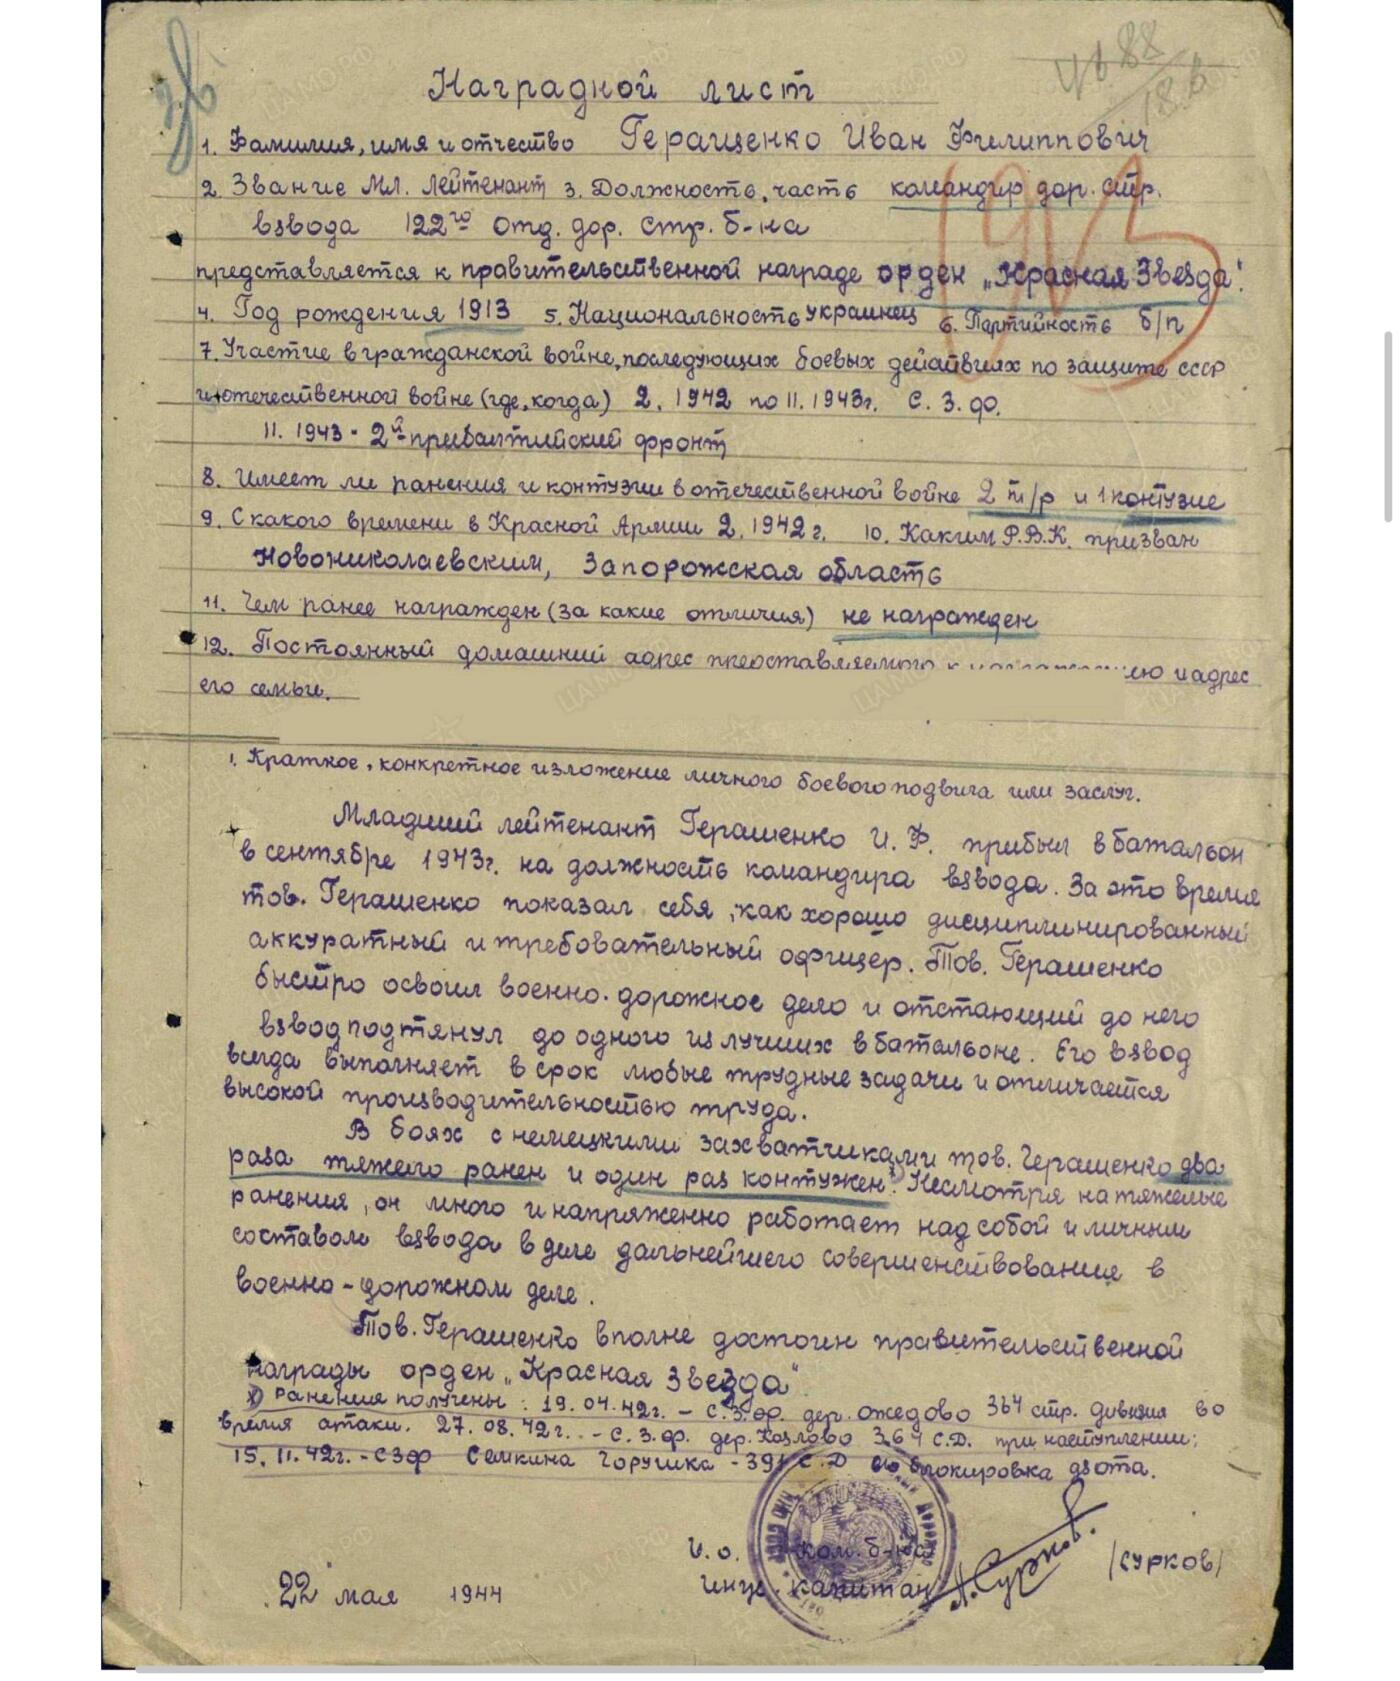 Наградной лист
1. Фамилия, имя и отчество Геращенко Иван Филиппович
2. Звание Мл. лейтенант 3. Должность, часть командир дор. стр.
взвода 122го отд. дор. стр. б-на
представляется к правительственной награде орден „Красная Звезда".
4. Год рождения 1913 5. Национальность украинец 6. Партийность б/п
7. Участие в гражданской войне, последующих боевых действиях по защите СССР
и отечественной войне (где, когда) 2. 1942 по 11. 1943г. С. З. Ф.
11. 1943 - 2й прибалтийский фронт
8. Имеет ли ранения и контузии в отечественной войне 2 т/р и 1 контузие
9. С какого времени в Красной Армии 2. 1942 г. 10. Каким Р.В.К. призван
Новониколаевским, Запорожская область
11. Чем ранее награжден (за какие отличия) не награжден
12. Постоянный домашний адрес представляемого к и адрес
его семьи.
1. Краткое, конкретное изложение личного боевого подвига или заслуг.
Младший лейтенант Герашенко И. Ф. прибыл в батальон
в сентябре 1943г. на должность командира взвода. За это время
тов. Герашенко показал себя, как хорошо дисциплинированный
аккуратный и требовательный офицер. Тов. Герашенко
быстро освоил военно-дорожное дело и отстающий до него
взвод подтянул до одного из лучших в батальоне. Его взвод
всегда выполняет в срок любые трудные задачи и отличается
высокой производительностью труда.
В боях с немецкими захватчиками тов. Геращенко два
раза тяжело ранен и один раз контужен. Несмотря на тяжелые
ранения, он много и напряженно работает над собой и личным
составом взвода в деле дальнейшего совершенствования в
военно-дорожном деле.
Тов. Герашенко вполне достоин правительственной
награды орден „Красная Звезда".
х) Ранения получены: 19. 04. 42г. – С.З.Ф. дер. Ожедово 364 стр. дивизия во
время атаки. 27. 08. 42г. – С. З. Ф. дер. Козлово 364 С.Д. при наступлении;
15. 11. 42г. – СЗФ Семкина Горушка – 391 С.Д блокировка дзота.
И. о. ком. б-на
Инж. капитан А. Сурков. /Сурков/
22 мая 1944